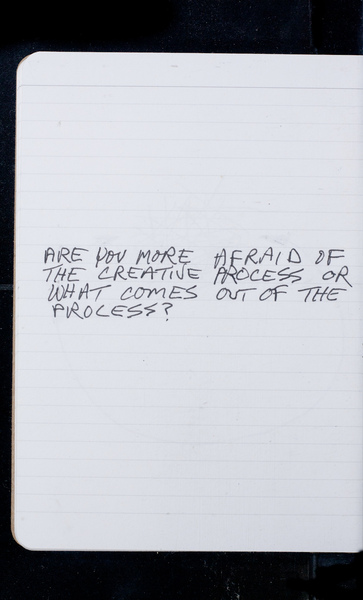 ARE YOU MORE AFRAID OF
THE CREATIVE PROCESS OR
WHAT COMES OUT OF THE
PROCESS?